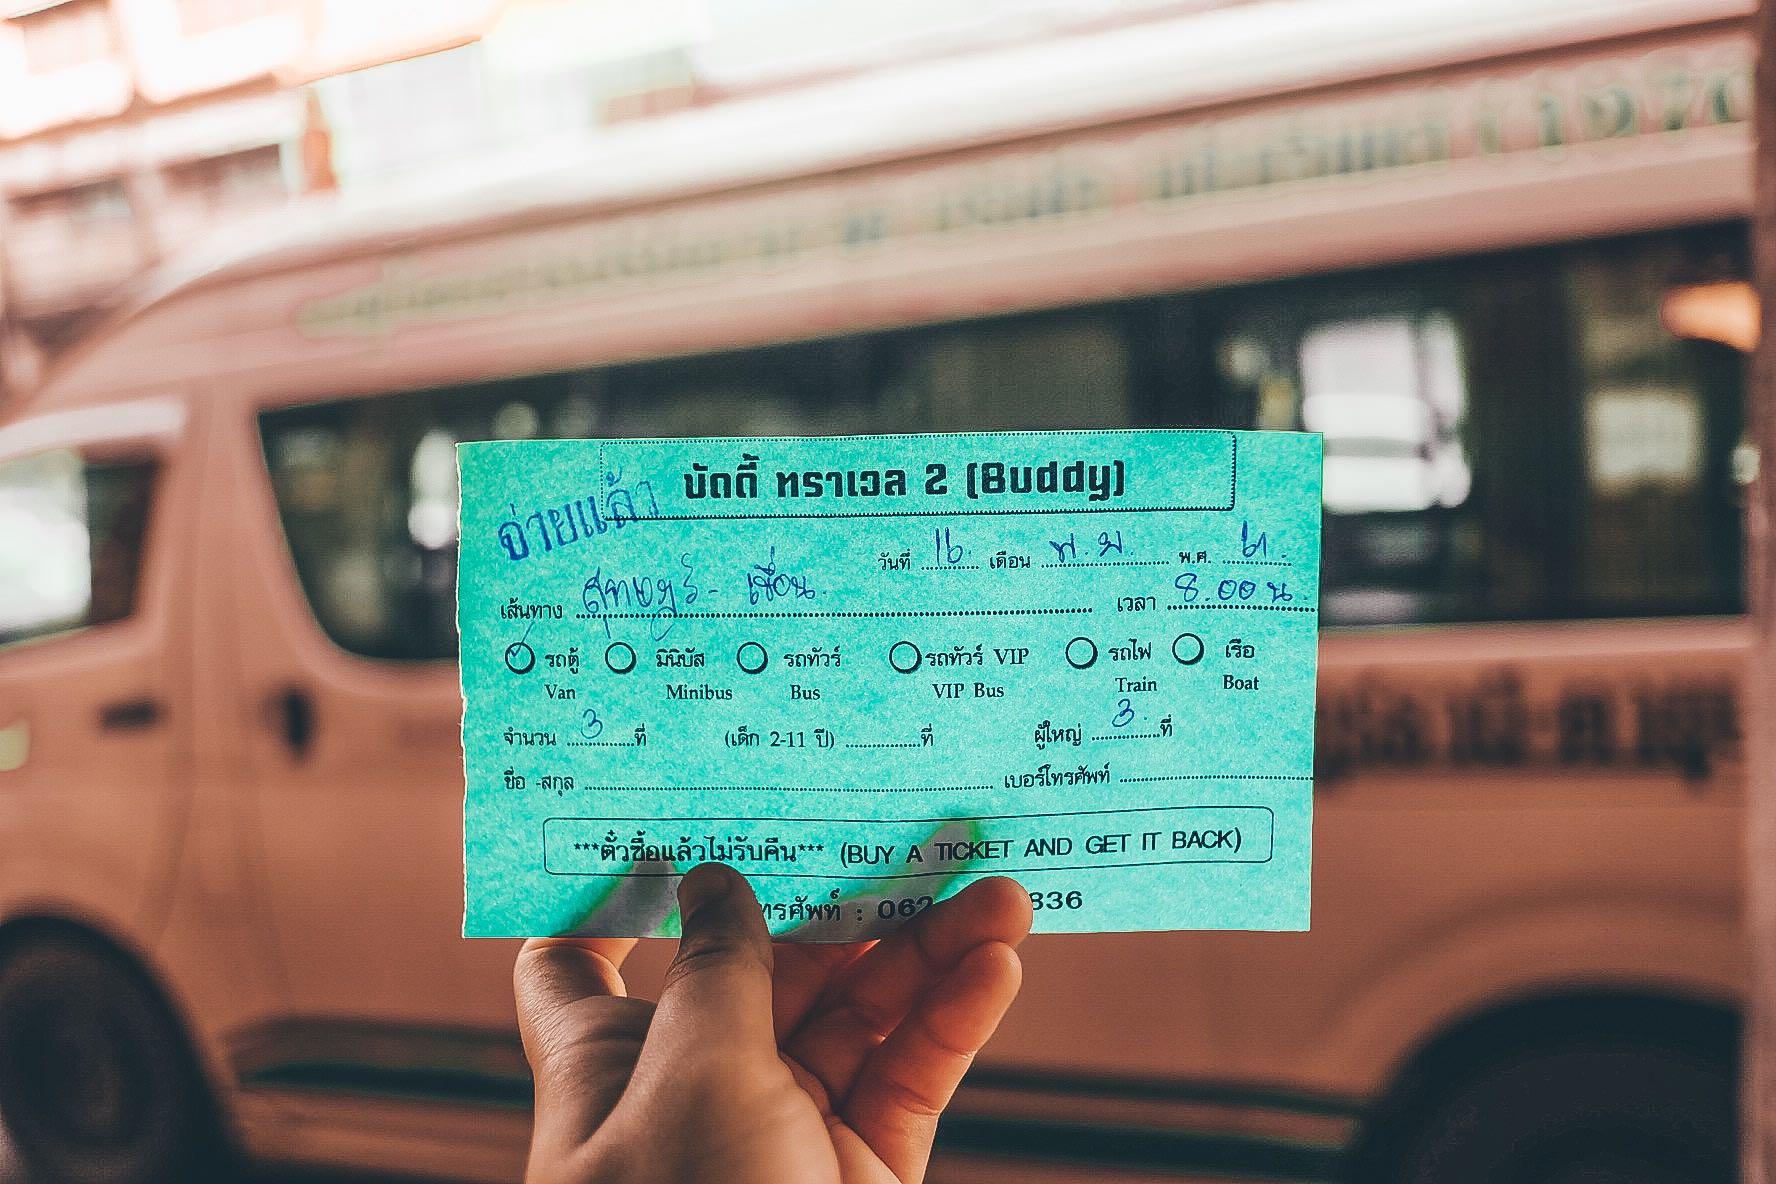 บัดดี้ ทราเวล 2 (Buddy)
จ่ายแล้ว
วันที่ 16. เดือน พ.ย. พ.ศ. 61.
เส้นทาง สุราษฎร์ - เขื่อน. เวลา 8.00 น.
รถตู้ มินิบัส รถทัวร์ รถทัวร์ VIP รถไฟ เรือ
Van Minibus Bus VIP Bus Train Boat
จำนวน 3 ที่ (เด็ก 2-11 ปี) ที่ ผู้ใหญ่ 3 ที่
ชื่อ -สกุล เบอร์โทรศัพท์
***ตั๋วซื้อแล้วไม่รับคืน*** (BUY A TICKET AND GET IT BACK)
ทรศัพท์ : 062 836